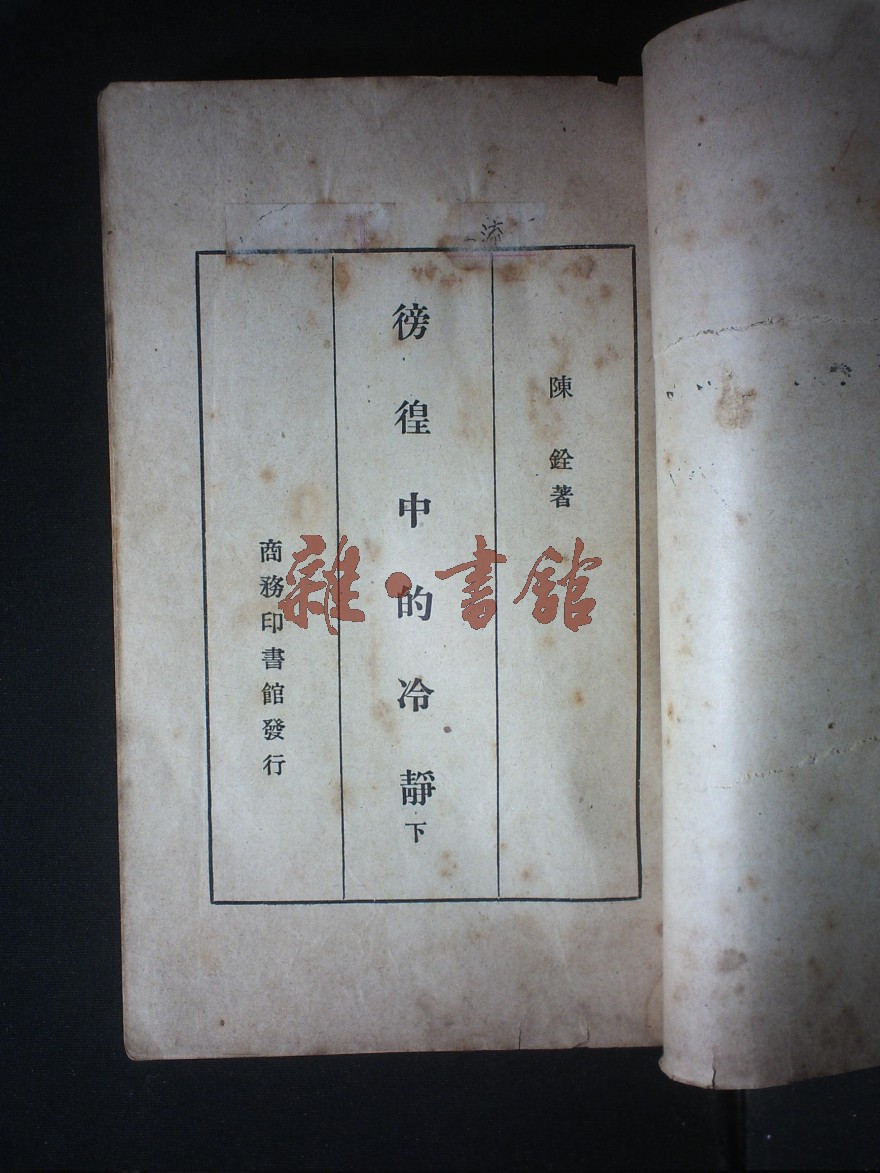 陳銓著
徬徨中的冷靜 下
商務印書館發行
雜·書館